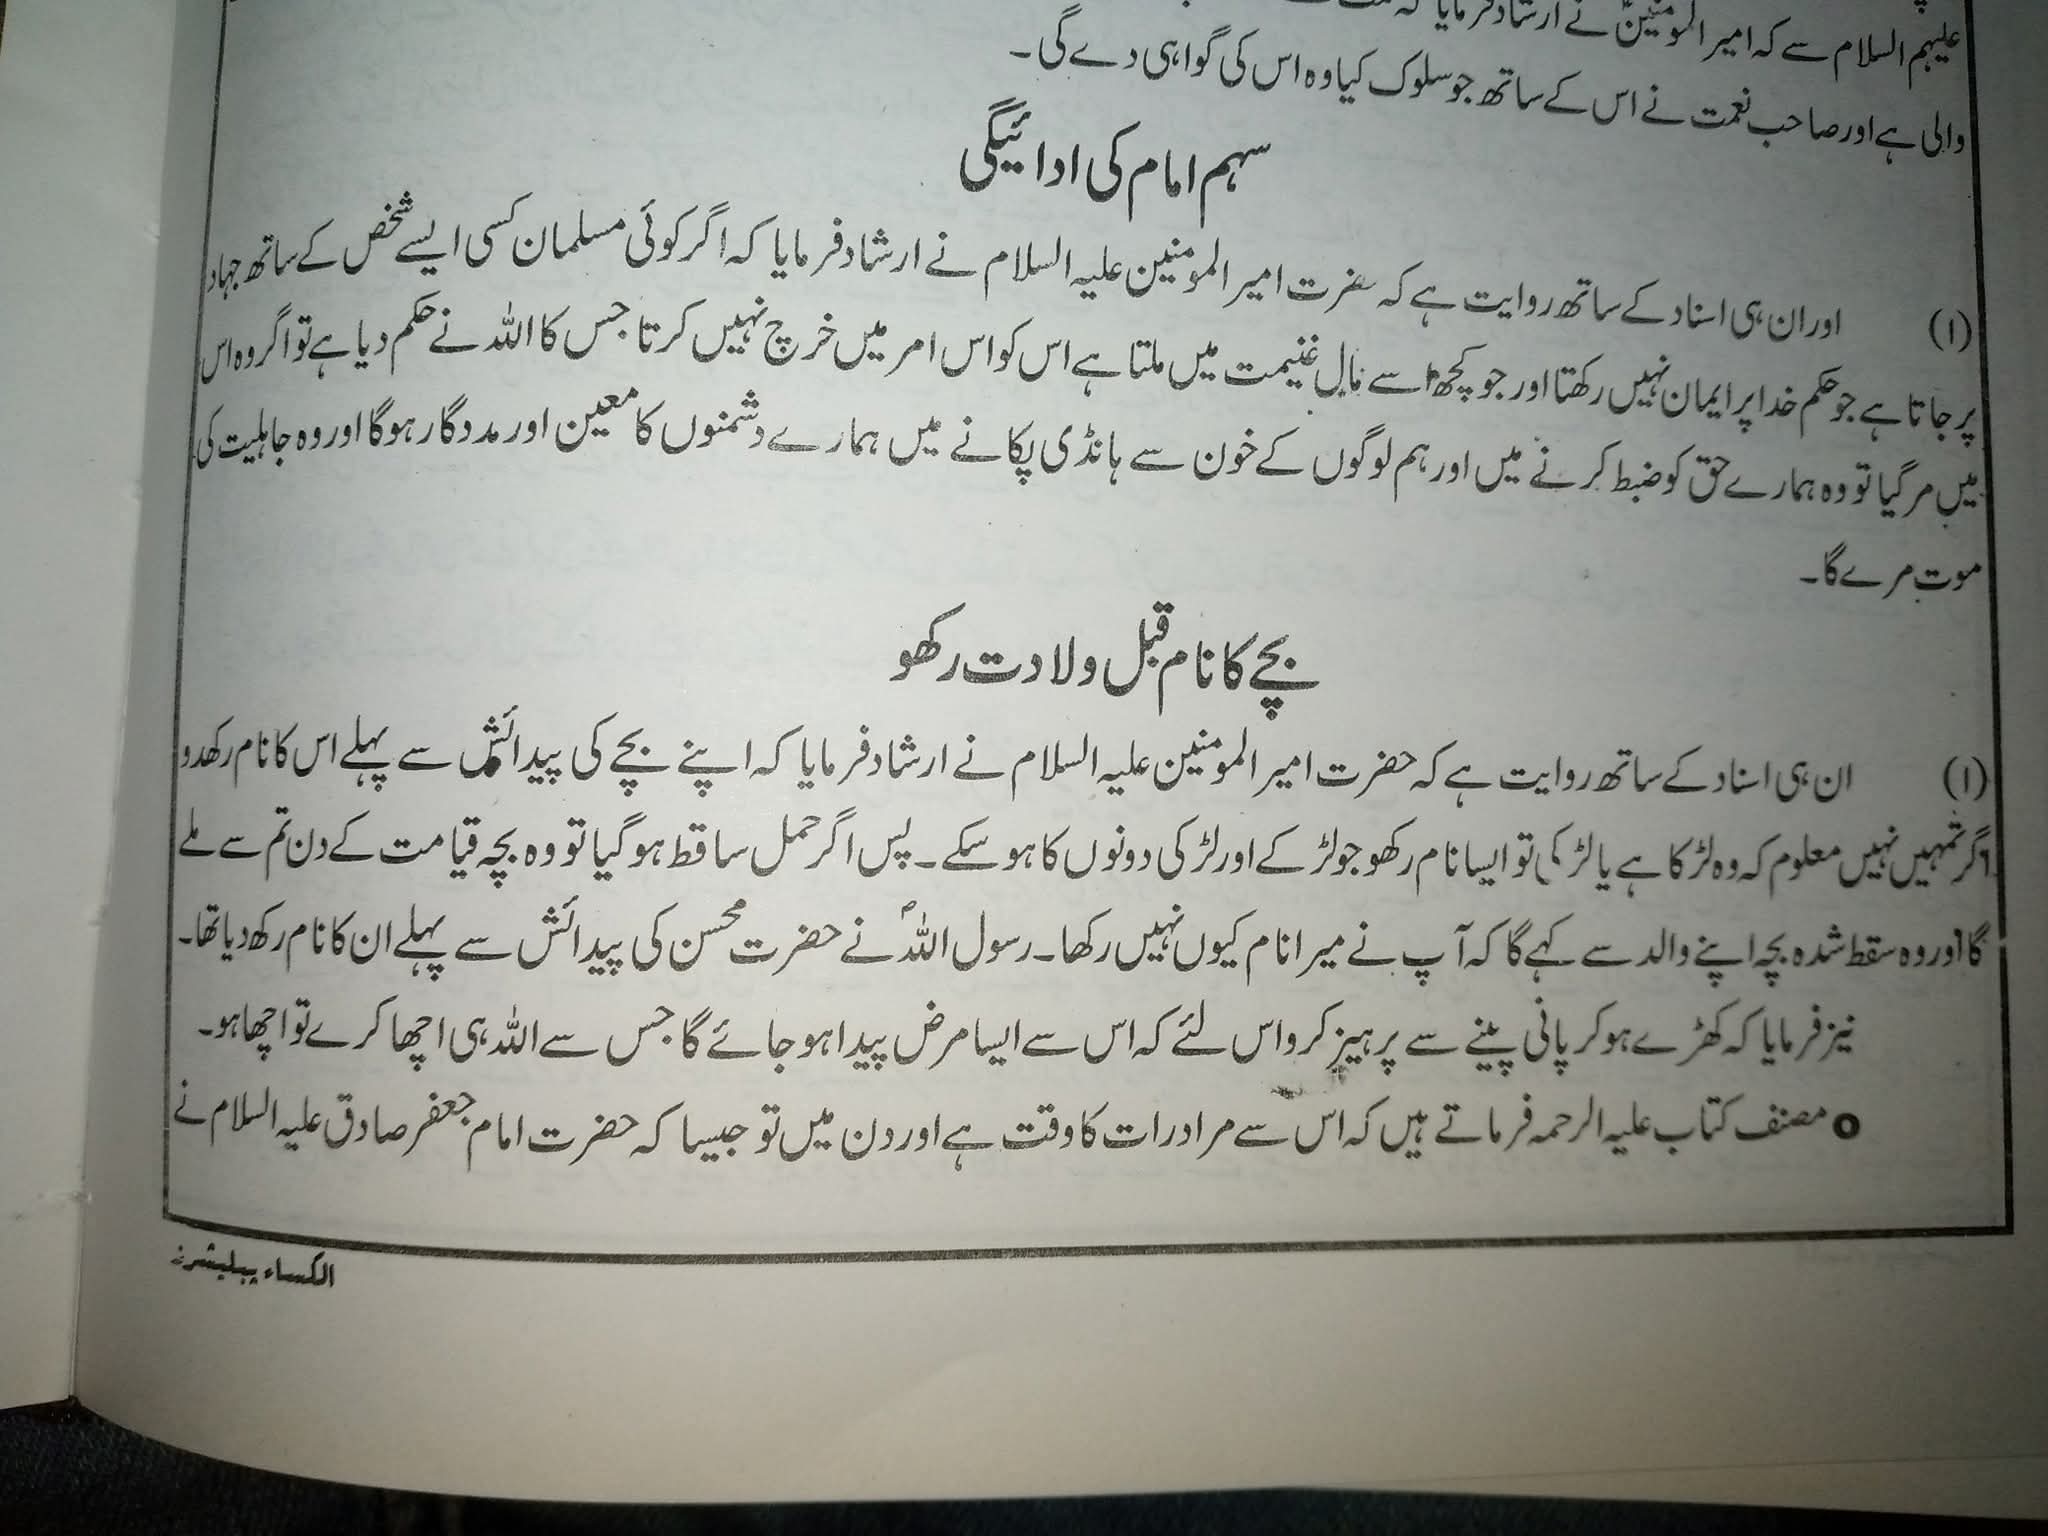 علیہم السلام سے کہ امیر المومنینؑ نے ارشاد فرمایا کہ
والی ہے اور صاحب نعمت نے اس کے ساتھ جو سلوک کیا وہ اس کی گواہی دے گی۔
سہم امام کی ادائیگی
(۱) اور ان ہی اسناد کے ساتھ روایت ہے کہ حضرت امیر المومنین علیہ السلام نے ارشاد فرمایا کہ اگر کوئی مسلمان کسی ایسے شخص کے ساتھ جہاد
پر جاتا ہے جو حکم خدا پر ایمان نہیں رکھتا اور جو کچھ اسے مال غنیمت میں ملتا ہے اس کو اس امر میں خرچ نہیں کرتا جس کا اللہ نے حکم دیا ہے تو اگر وہ اس
میں مر گیا تو وہ ہمارے حق کو ضبط کرنے میں اور ہم لوگوں کے خون سے ہانڈی پکانے میں ہمارے دشمنوں کا معین اور مددگار ہوگا اور وہ جاہلیت کی
موت مرے گا۔
بچے کا نام قبل ولادت رکھو
(۱) ان ہی اسناد کے ساتھ روایت ہے کہ حضرت امیر المومنین علیہ السلام نے ارشاد فرمایا کہ اپنے بچے کی پیدائش سے پہلے اس کا نام رکھدو
اگر تمہیں نہیں معلوم کہ وہ لڑکا ہے یا لڑکی تو ایسا نام رکھو جو لڑکے اور لڑکی دونوں کا ہو سکے۔ پس اگر حمل ساقط ہو گیا تو وہ بچہ قیامت کے دن تم سے ملے
گا اور وہ سقط شدہ بچہ اپنے والد سے کہے گا کہ آپ نے میرا نام کیوں نہیں رکھا۔ رسول اللہؐ نے حضرت محسن کی پیدائش سے پہلے ان کا نام رکھ دیا تھا۔
نیز فرمایا کہ کھڑے ہو کر پانی پینے سے پرہیز کرو اس لئے کہ اس سے ایسا مرض پیدا ہو جائے گا جس سے اللہ ہی اچھا کرے تو اچھا ہو۔
o مصنف کتاب علیہ الرحمہ فرماتے ہیں کہ اس سے مراد رات کا وقت ہے اور دن میں تو جیسا کہ حضرت امام جعفر صادق علیہ السلام نے
الکساء پبلیشرز